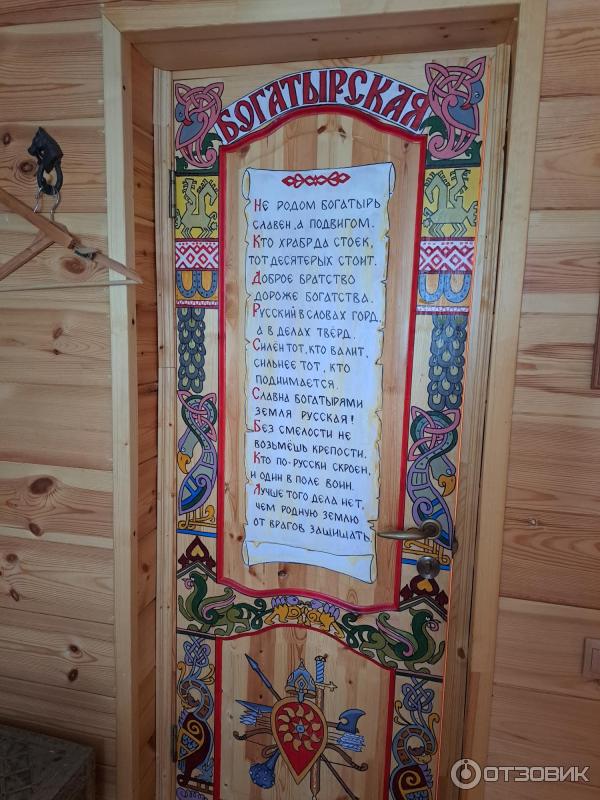 БОГАТЫРСКАЯ
Не родом богатырь
славен, а подвигом.
Кто храбр да стоек,
тот десятерых стоит.
Доброе братство
дороже богатства.
Русский в словах горд,
а в делах твёрд.
Силён тот, кто валит,
сильнее тот, кто
поднимается.
Славна богатырями
земля русская!
Без смелости не
возьмёшь крепости.
Кто по-русски скроен,
и один в поле воин.
Лучше того дела нет,
чем родную землю
от врагов защищать.
ОТЗОВИК